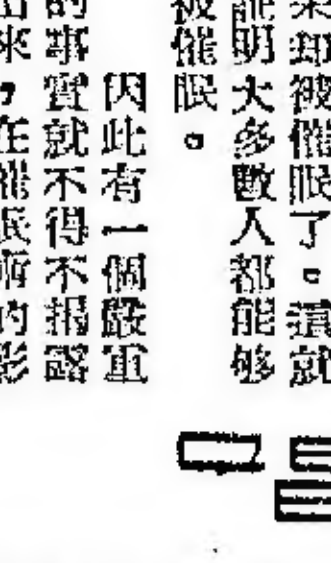 果却被催眠了。這就
証明大多數人都能够
被催眠。
因此有一個嚴重
的事實就不得不揭露
出來，在催眠術的影